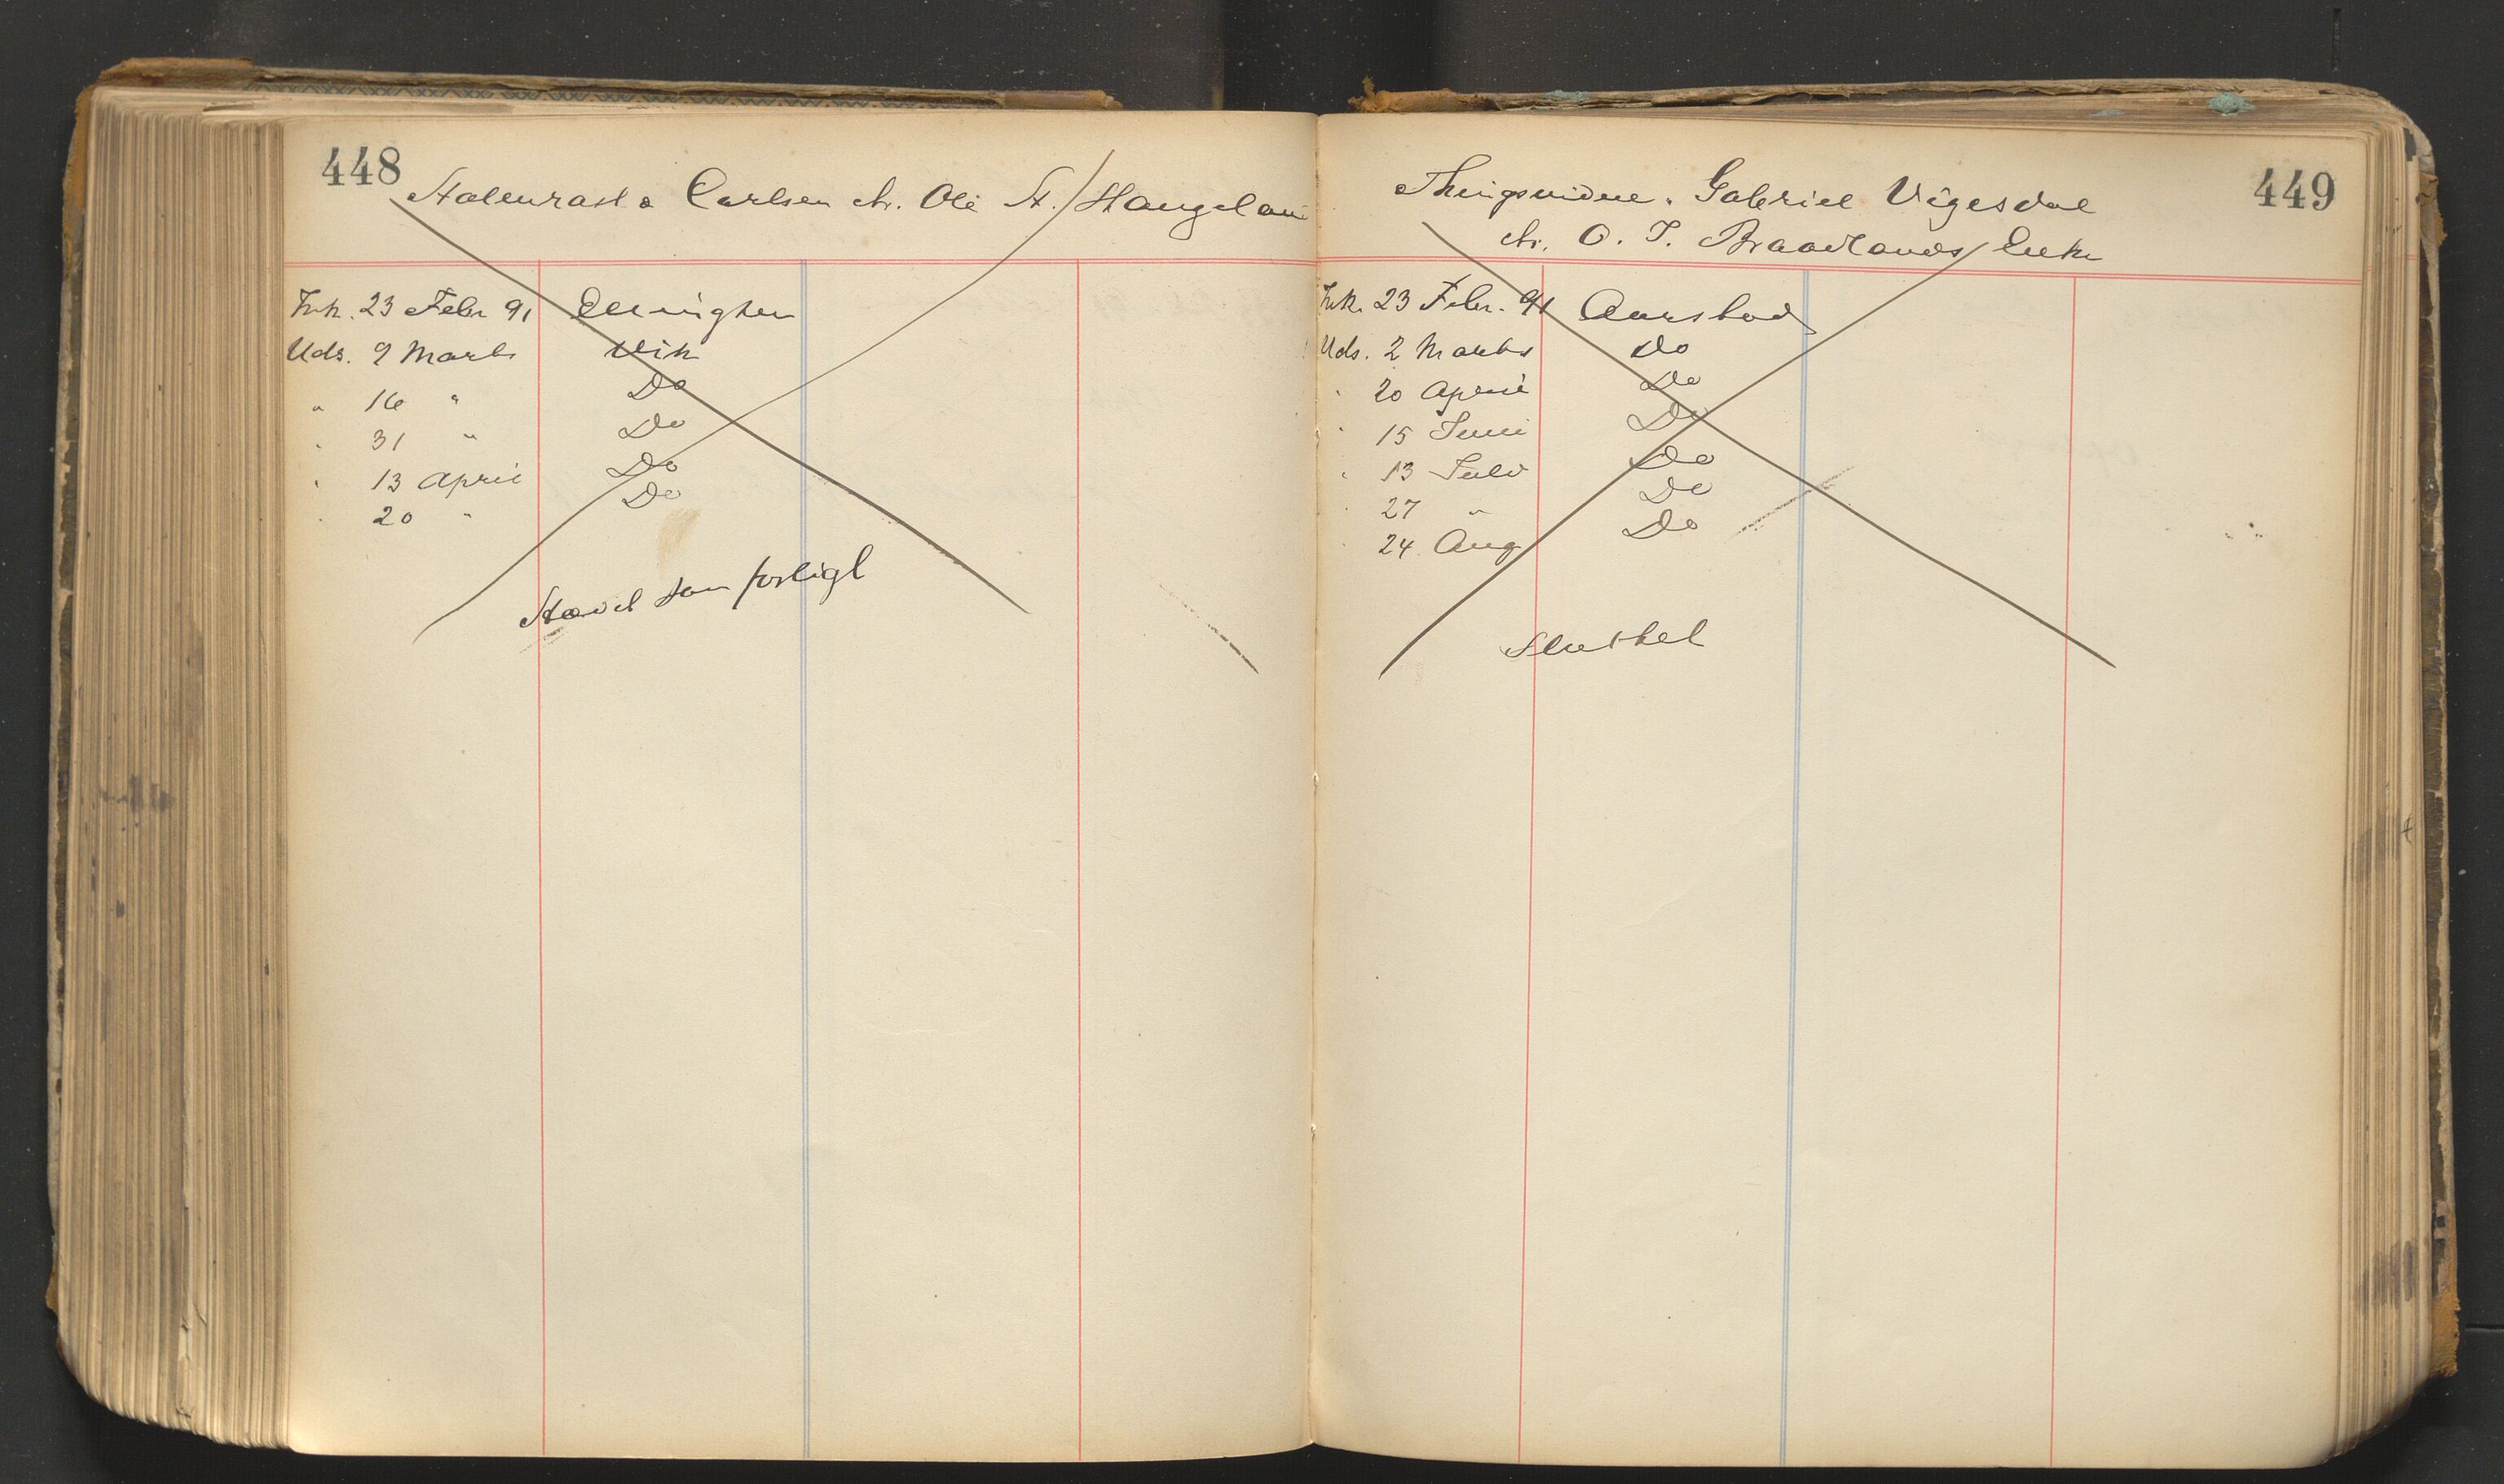 448
Stalenrast & Carlsen ctr. Ole A. Haugeland
Frk. 23 Febr 91 Ellingsen
Uds. 9 Marts Vik
" 16 " Do
" 31 " Do
" 13 April Do
" 20 " Do
Hævet som forligt
449
Thingsvidne. Gabriel Vigesdal
ctr. O. T. Braadlands Enke
Frk. 23 Febr. 91 Aarstad
Uds. 2 Marts Do
" 20 April Do
" 15 Juni Do
" 13 Juli Do
" 27 " Do
" 24 Aug Do
Sluttet